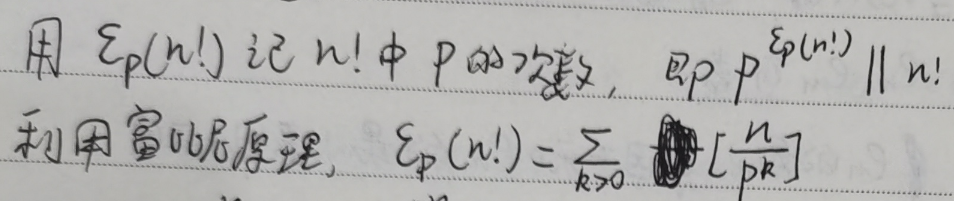 用 εp(n!) 记 n! 中 p 的次数, 即 p^{εp(n!)} || n!
利用富比尼原理, εp(n!) = ∑_{k>0} [n/p^k]